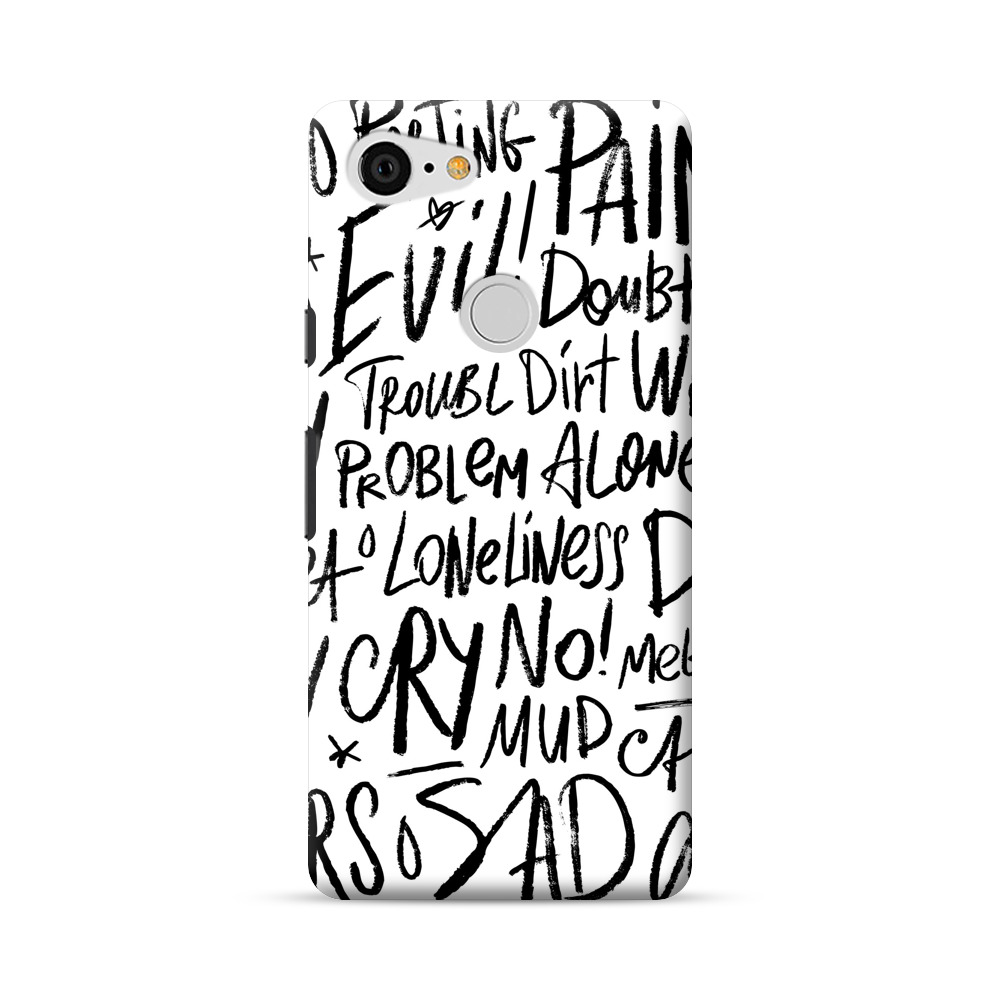 PAIN
Evil!
Doubt
TROUBL Dirt W
PROBLEM ALONE
LONELINESS D
CRY NO! Mel
MUD CA
RS SAD